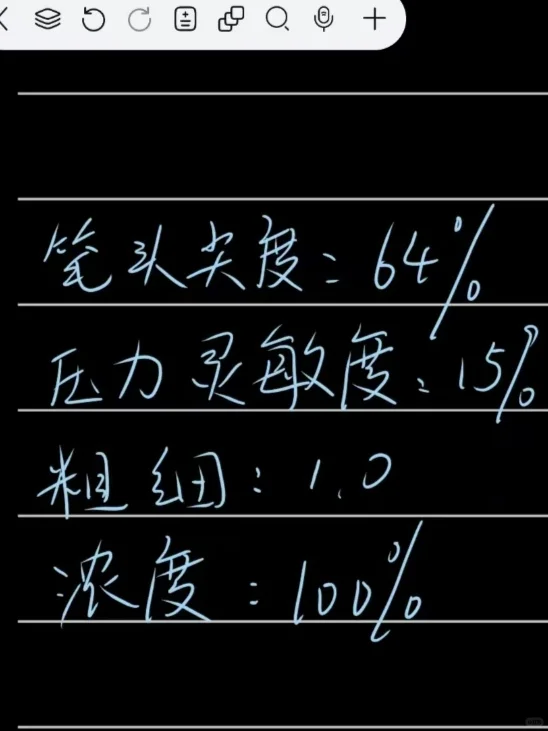 笔头尖度：64%
压力灵敏度：15%
粗细：1.0
浓度：100%